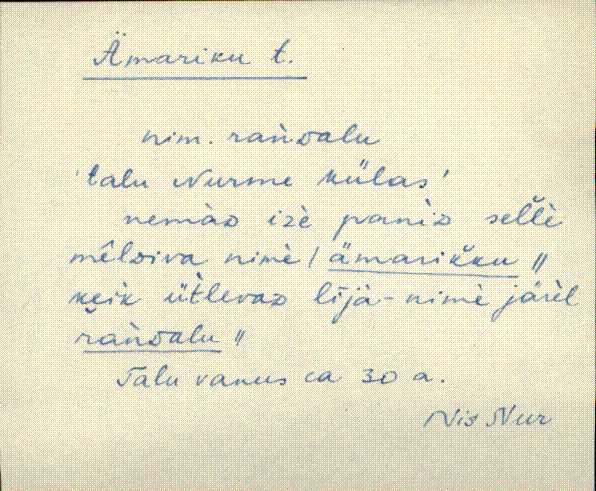 Ämariku t.
nim. rańdalu
'talu Nurme külas'
nemàD izè paniD sellè
mêlDiva nimè / ämarikku //
keik ütlevaD lījà-nimè järèl
rańdalu //
Talu vanus ca 30 a.
Nis Nur